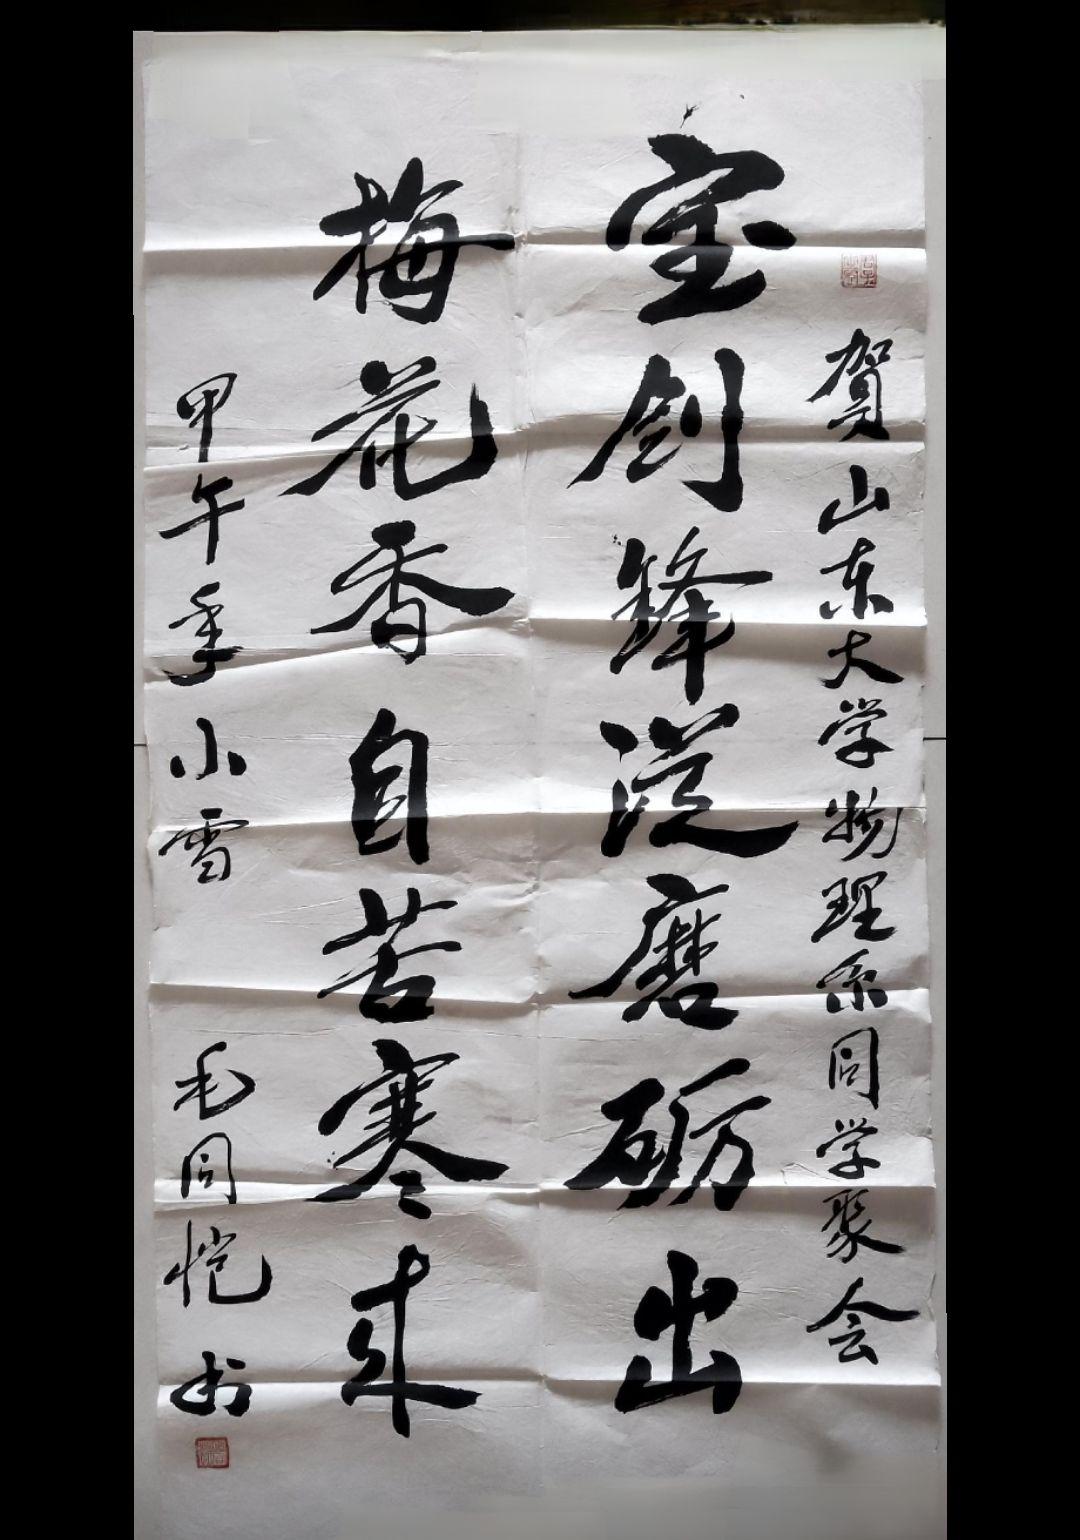 贺山东大学物理系同学聚会
宝剑锋从磨砺出
梅花香自苦寒来
甲午年小雪
毛同恺书